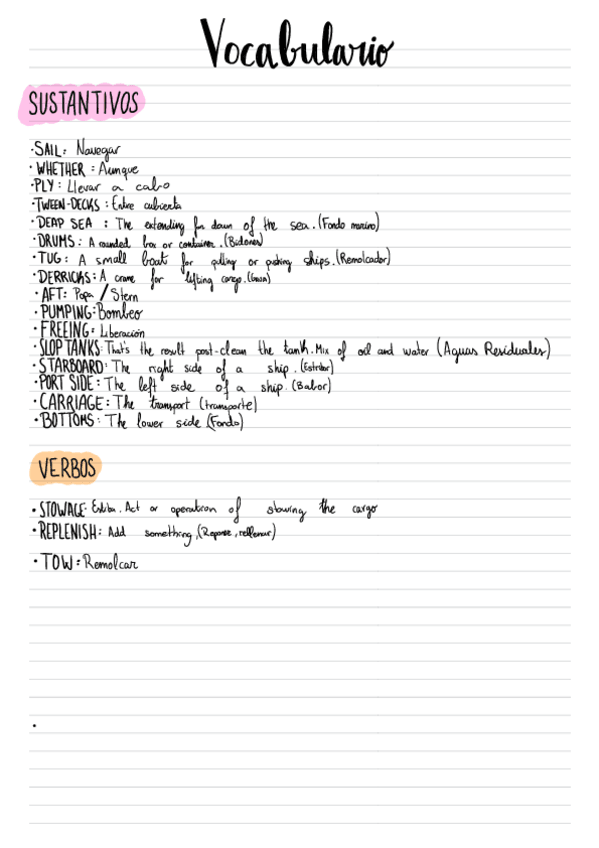 Vocabulario
SUSTANTIVOS
·SAIL: Navegar
·WHETHER: Aunque
·PLY: Llevar a cabo
·TWEEN-DECKS: Entre cubierta
·DEAP SEA: The extending far down of the sea. (Fondo marino)
·DRUMS: A rounded box or container. (Bidones)
·TUG: A small boat for pulling or pushing ships. (Remolcador)
·DERRICKS: A crane for lifting cargo. (Grua)
·AFT: Popa / Stern
·PUMPING: Bombeo
·FREEING: Liberación
·SLOP TANKS: That's the result post-clean the tank. Mix of oil and water (Aguas Residuales)
·STARBOARD: The right side of a ship. (Estribor)
·PORT SIDE: The left side of a ship. (Babor)
·CARRIAGE: The transport (transporte)
·BOTTOMS: The lower side (Fondo)
VERBOS
·STOWAGE: Estiba. Act or operation of stowing the cargo
·REPLENISH: Add something, (Reponer, rellenar)
·TOW: Remolcar
·